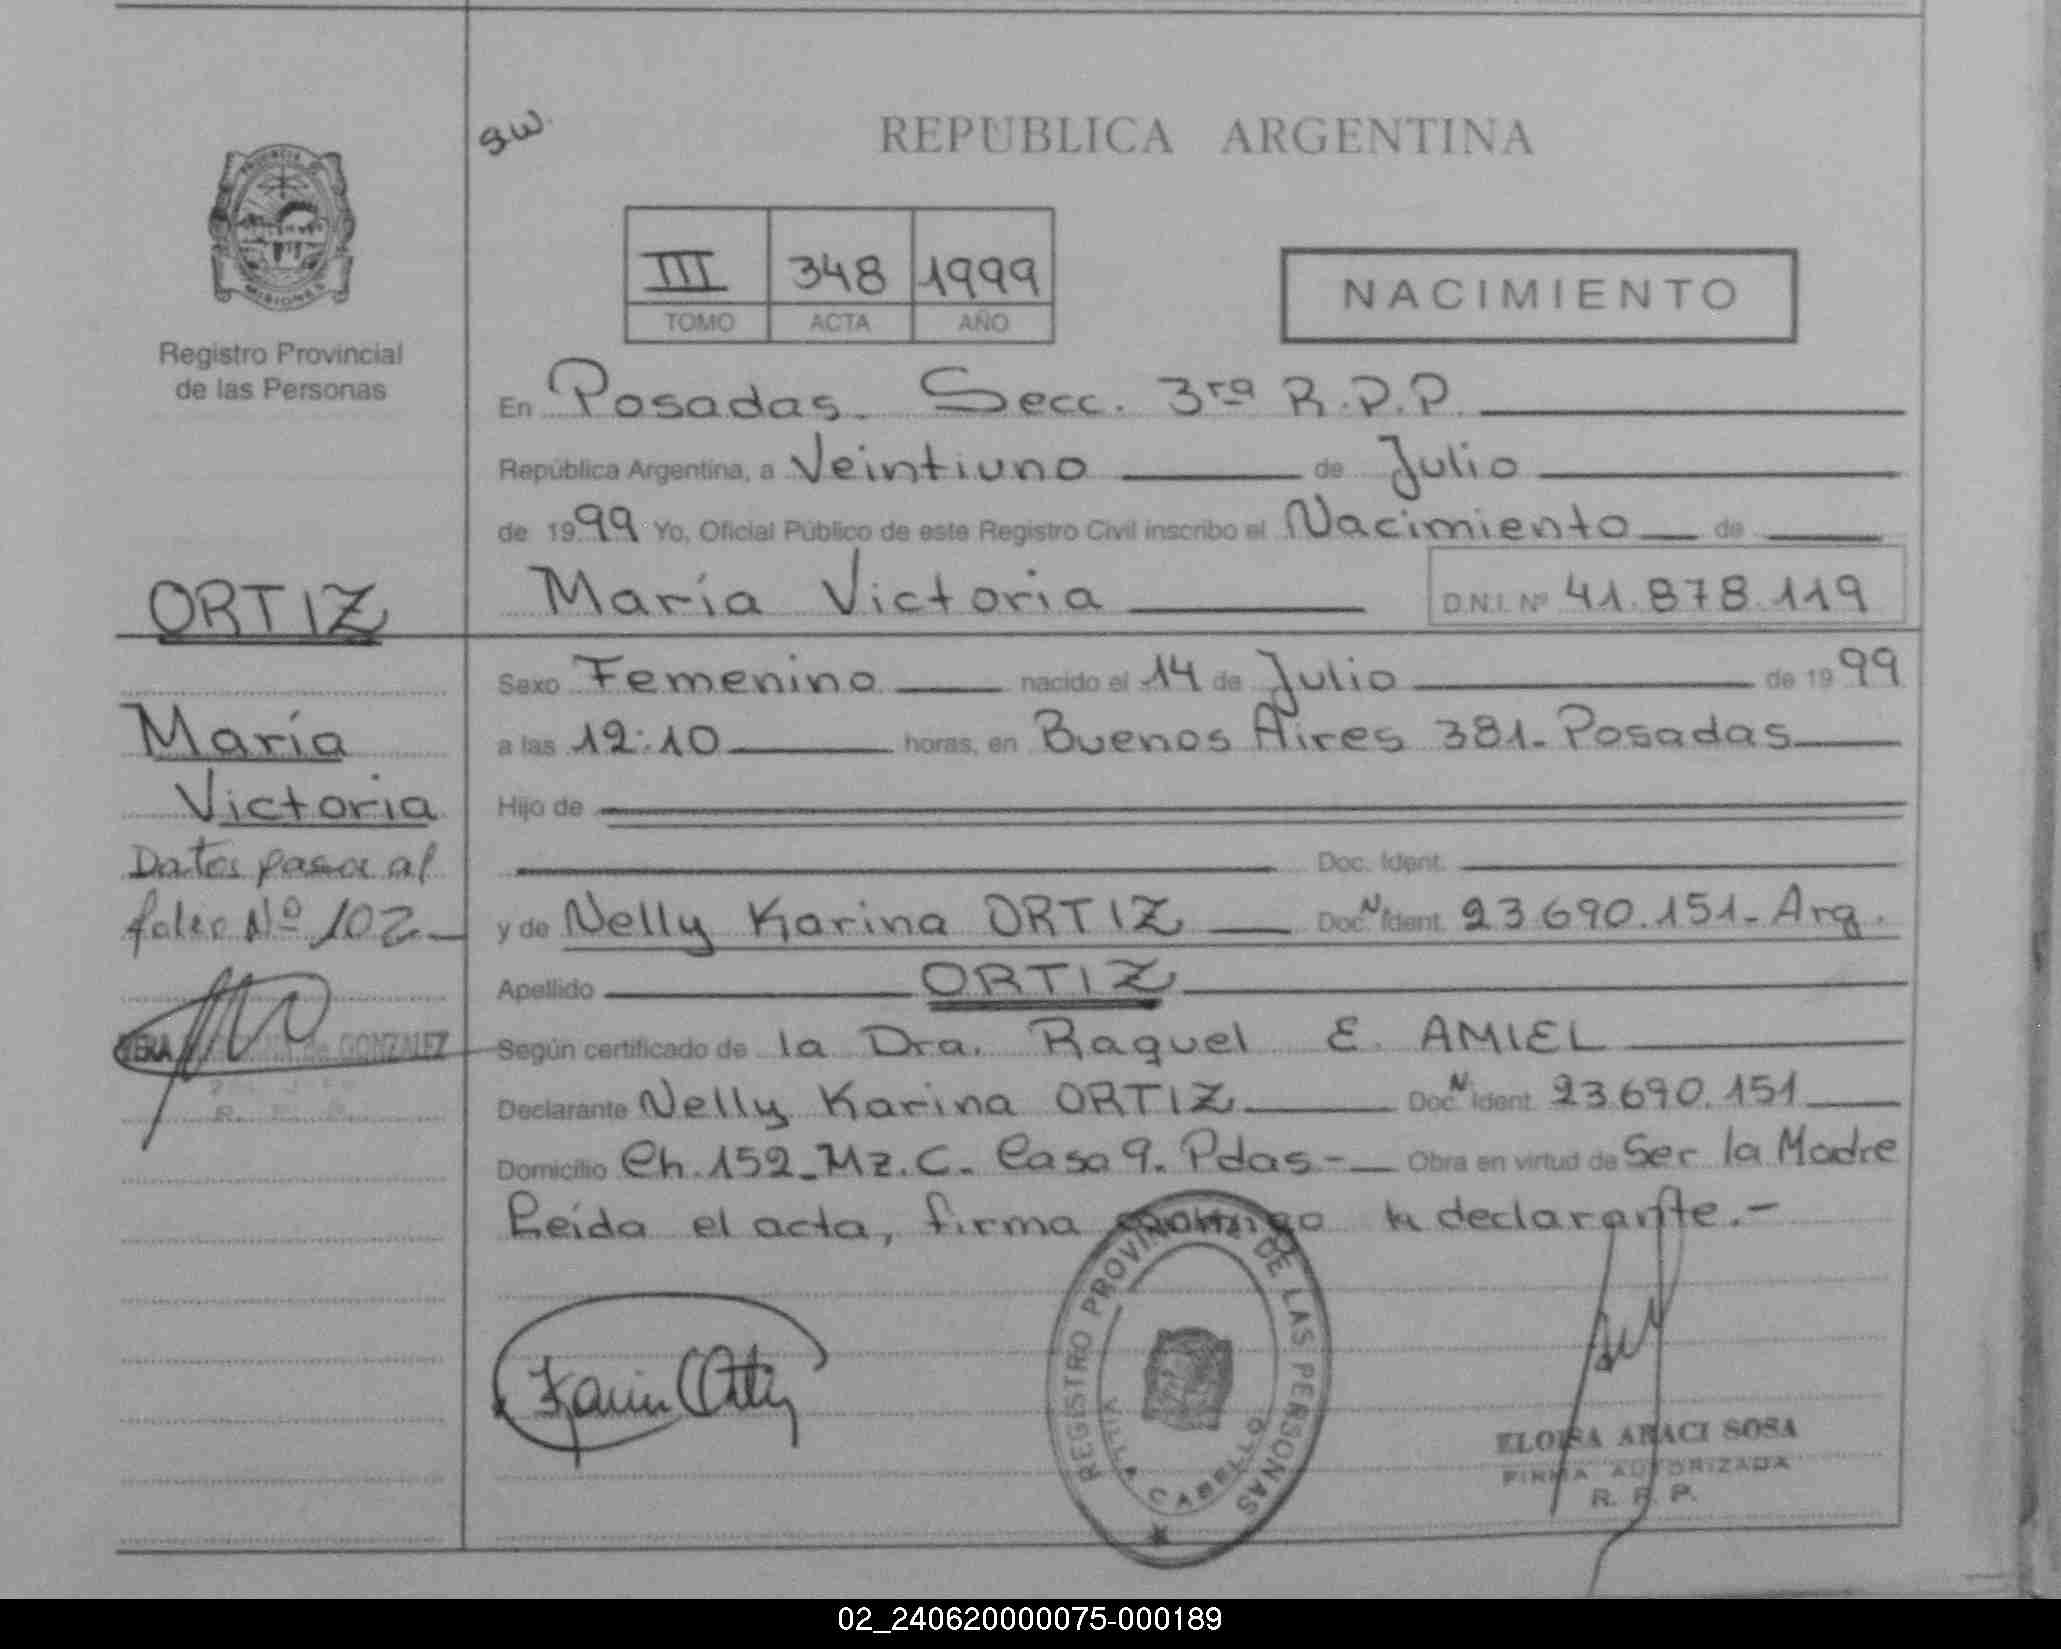 sw.
REPUBLICA ARGENTINA
PROVINCIA DE
MISIONES
Registro Provincial
de las Personas
III 348 1999
TOMO ACTA AÑO
NACIMIENTO
En Posadas. Secc. 3ra R.P.P.
República Argentina, a Veintiuno de Julio
de 1999 Yo, Oficial Público de este Registro Civil inscribo el Nacimiento de
María Victoria D.N.I. Nº 41.878.119
ORTIZ
María
Victoria
Datos pasa al
folio Nº 102.
de GONZALEZ
Sexo Femenino nacido el 14 de Julio de 1999
a las 12:10 horas, en Buenos Aires 381. Posadas
Hijo de
Doc. Ident.
y de Nelly Karina ORTIZ Doc. N. Ident. 23.690.151. Arg.
Apellido ORTIZ
Según certificado de la Dra. Raquel E. AMIEL
Declarante Nelly Karina ORTIZ Doc. N. Ident. 23.690.151
Domicilio Ch. 152. Mz. C. Casa 9. Pdas.- Obra en virtud de Ser la Madre
Leída el acta, firma conmigo la declarante.-
Karin Ortiz
REGISTRO PROVINCIAL DE LAS PERSONAS
VILLA CABELLO
ELOISA ARACI SOSA
FIRMA AUTORIZADA
R. P. P.
02_240620000075-000189